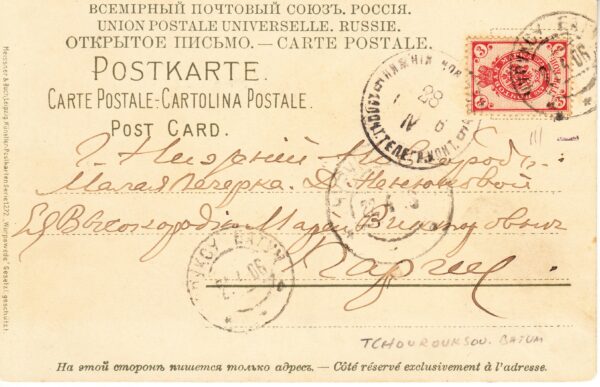 ВСЕМІРНЫЙ ПОЧТОВЫЙ СОЮЗЪ. РОССІЯ.
UNION POSTALE UNIVERSELLE. RUSSIE.
ОТКРЫТОЕ ПИСЬМО. — CARTE POSTALE.
POSTKARTE.
CARTE POSTALE-CARTOLINA POSTALE.
POST CARD.
Г. Нижній Новгородъ.
Малая Печерка. Д.
Ея Высокородію Маріи Викторовнѣ
TCHOUROUKSOU. BATUM
На этой сторонѣ пишется только адресъ. — Côté réservé exclusivement à l'adresse.
Meissner & Buch, Leipzig, Künstler-Postkarten Serie 1272. „Worpswede" Gesetzl. geschützt.
3
3
28
IV
BATUM